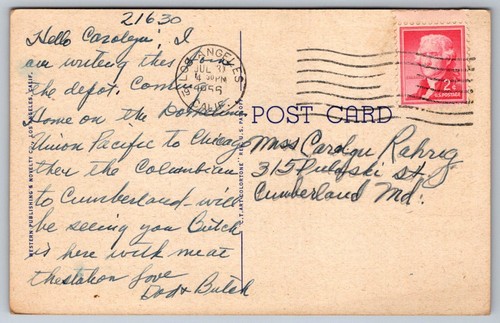 21630
Hello Carolyn: I
am writing this from
the depot. Coming
Home on the Domeliner
Union Pacific to Chicago
then the Columbian
to Cumberland - will
be seeing you Butch
is here with me at
the station love
Dad & Butch
LOS ANGELES
JUL 31
4 PM
1956
CALIF.
2¢
U.S. POSTAGE
POST CARD
Miss Carolyn Rahrig
315 Pulaski St.
Cumberland Md.
WESTERN PUBLISHING & NOVELTY CO., LOS ANGELES, CALIF.
C.T. ART-COLORTONE REG. U.S. PAT. OFF.